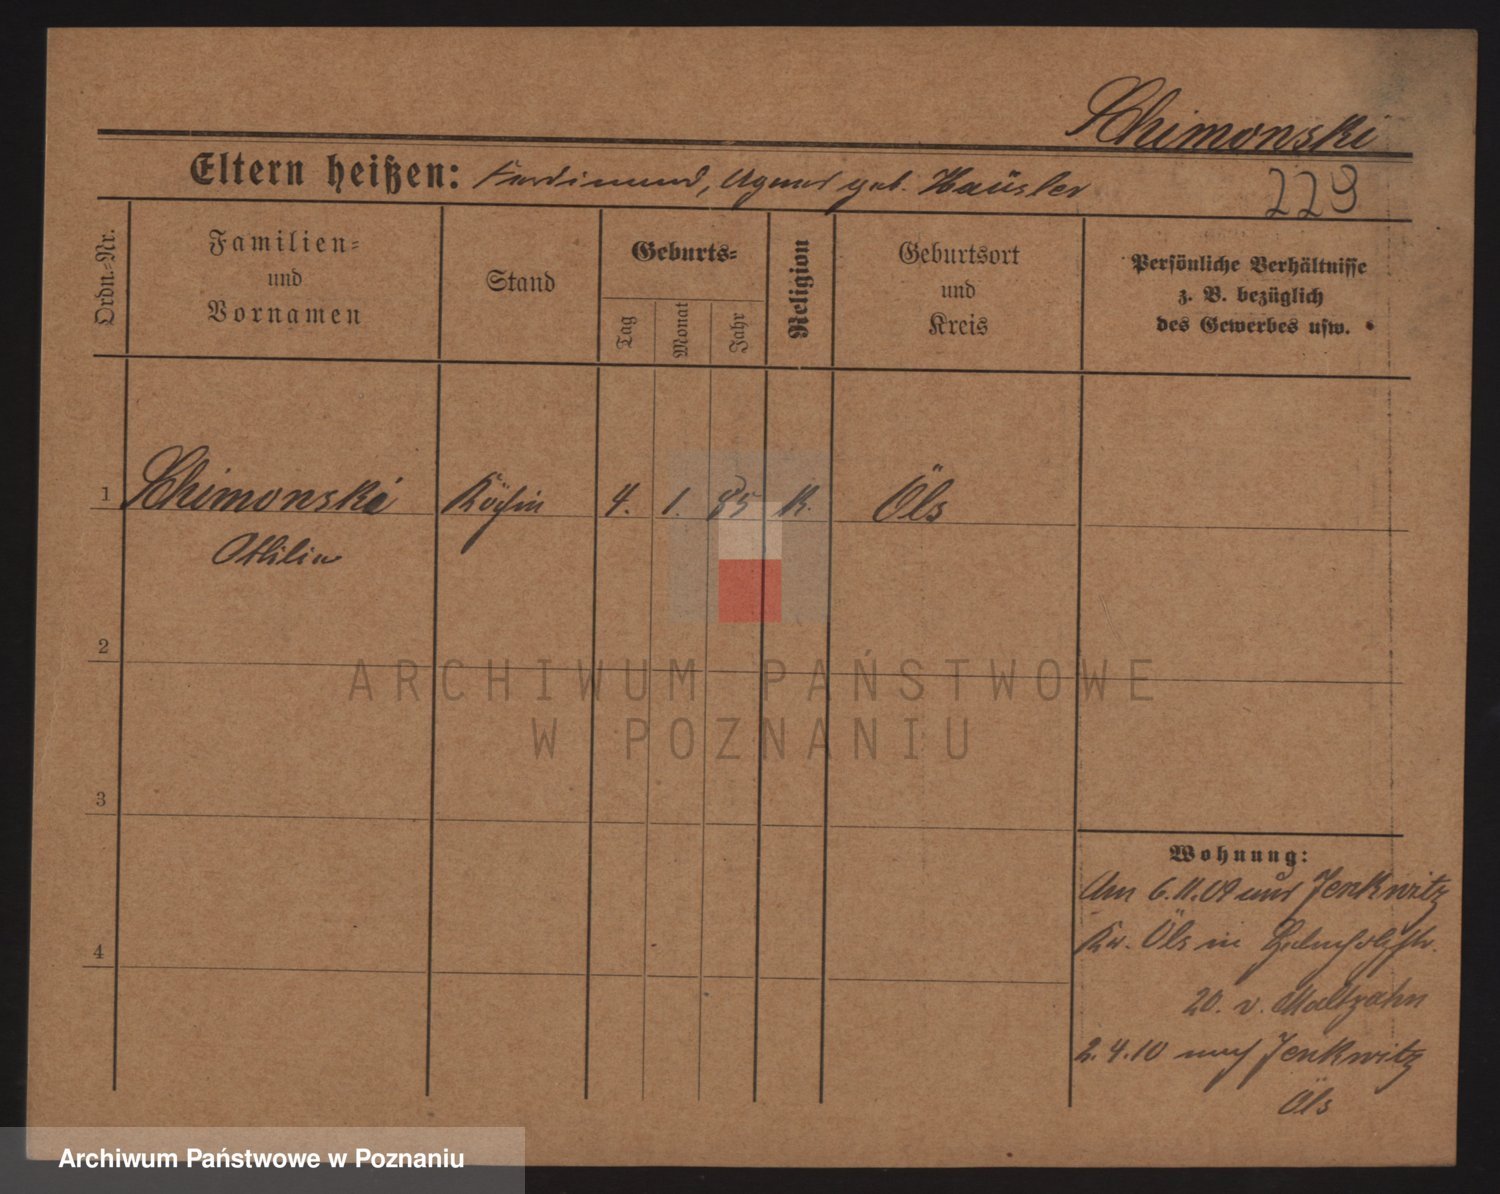 Schimonski
Eltern heißen: Ferdinand, Agnes geb. Haüsler
229
Ordn.-Nr.
Familien-
und
Vornamen
Stand
Geburts-
Tag
Monat
Jahr
Religion
Geburtsort
und
Kreis
Persönliche Verhältnisse
z. B. bezüglich
des Gewerbes usw.
1 Schimonski Köchin 4. 1. 85 K. Öls
Ottilie
2
3
4
Wohnung:
Am 6.11.09 aus Jenkwitz
Kr. Öls in
20. v. Maltzahn
2.4.10 nach Jenkwitz
Öls
ARCHIWUM PAŃSTWOWE
W POZNANIU
Archiwum Państwowe w Poznaniu